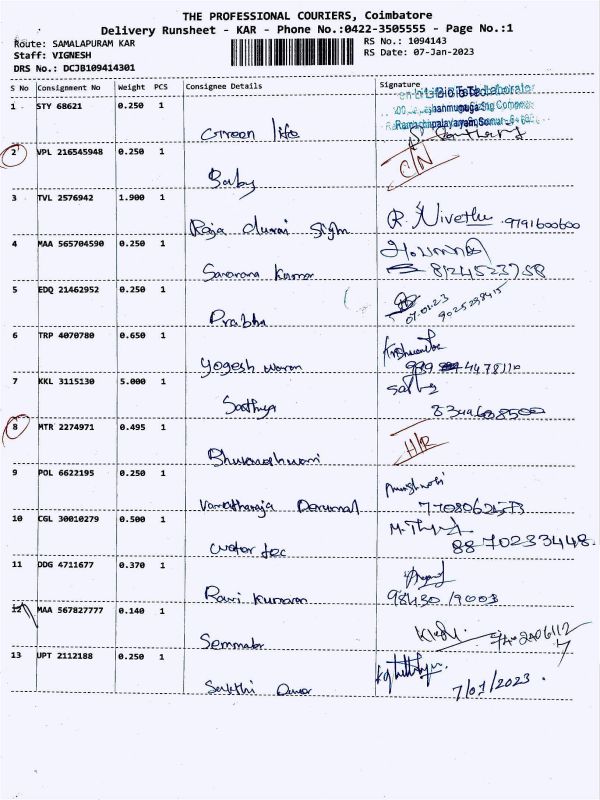 THE PROFESSIONAL COURIERS, Coimbatore
Delivery Runsheet - KAR - Phone No.:0422-3505555 - Page No.:1
Route: SAMALAPURAM KAR
RS No.: 1094143
Staff: VIGNESH
RS Date: 07-Jan-2023
DRS No.: DCJB109414301
S No Consignment No Weight PCS Consignee Details Signature
1 STY 68621 0.250 1
Green life
2 VPL 216545948 0.250 1
Baby C/N
3 TVL 2576942 1.900 1
Raja durai R. Nivetha 9791600600
4 MAA 565704590 0.250 1
Saravana Kumar 8124523758
5 EDQ 21462952 0.250 1
Prabha 07.01.23 9025298415
6 TRP 4070780 0.650 1
Yogesh waran
7 KKL 3115130 5.000 1
Sathya
8 MTR 2274971 0.495 1
H/R
9 POL 6622195 0.250 1
10 CGL 30010279 0.500 1
water tec 8870233448
11 DDG 4711677 0.370 1
Ravi Kumaran 98430 19003
12 MAA 567827777 0.140 1
13 UPT 2112188 0.250 1
Sakthi 7/01/2023